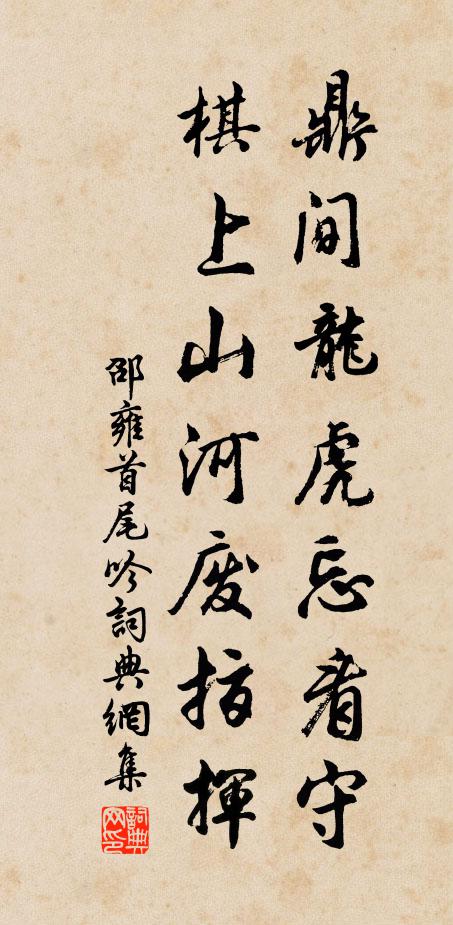 鼎间龍虎忘看守
棋上山河廢指揮
邵雍首尾吟詞典網集
詞典網印